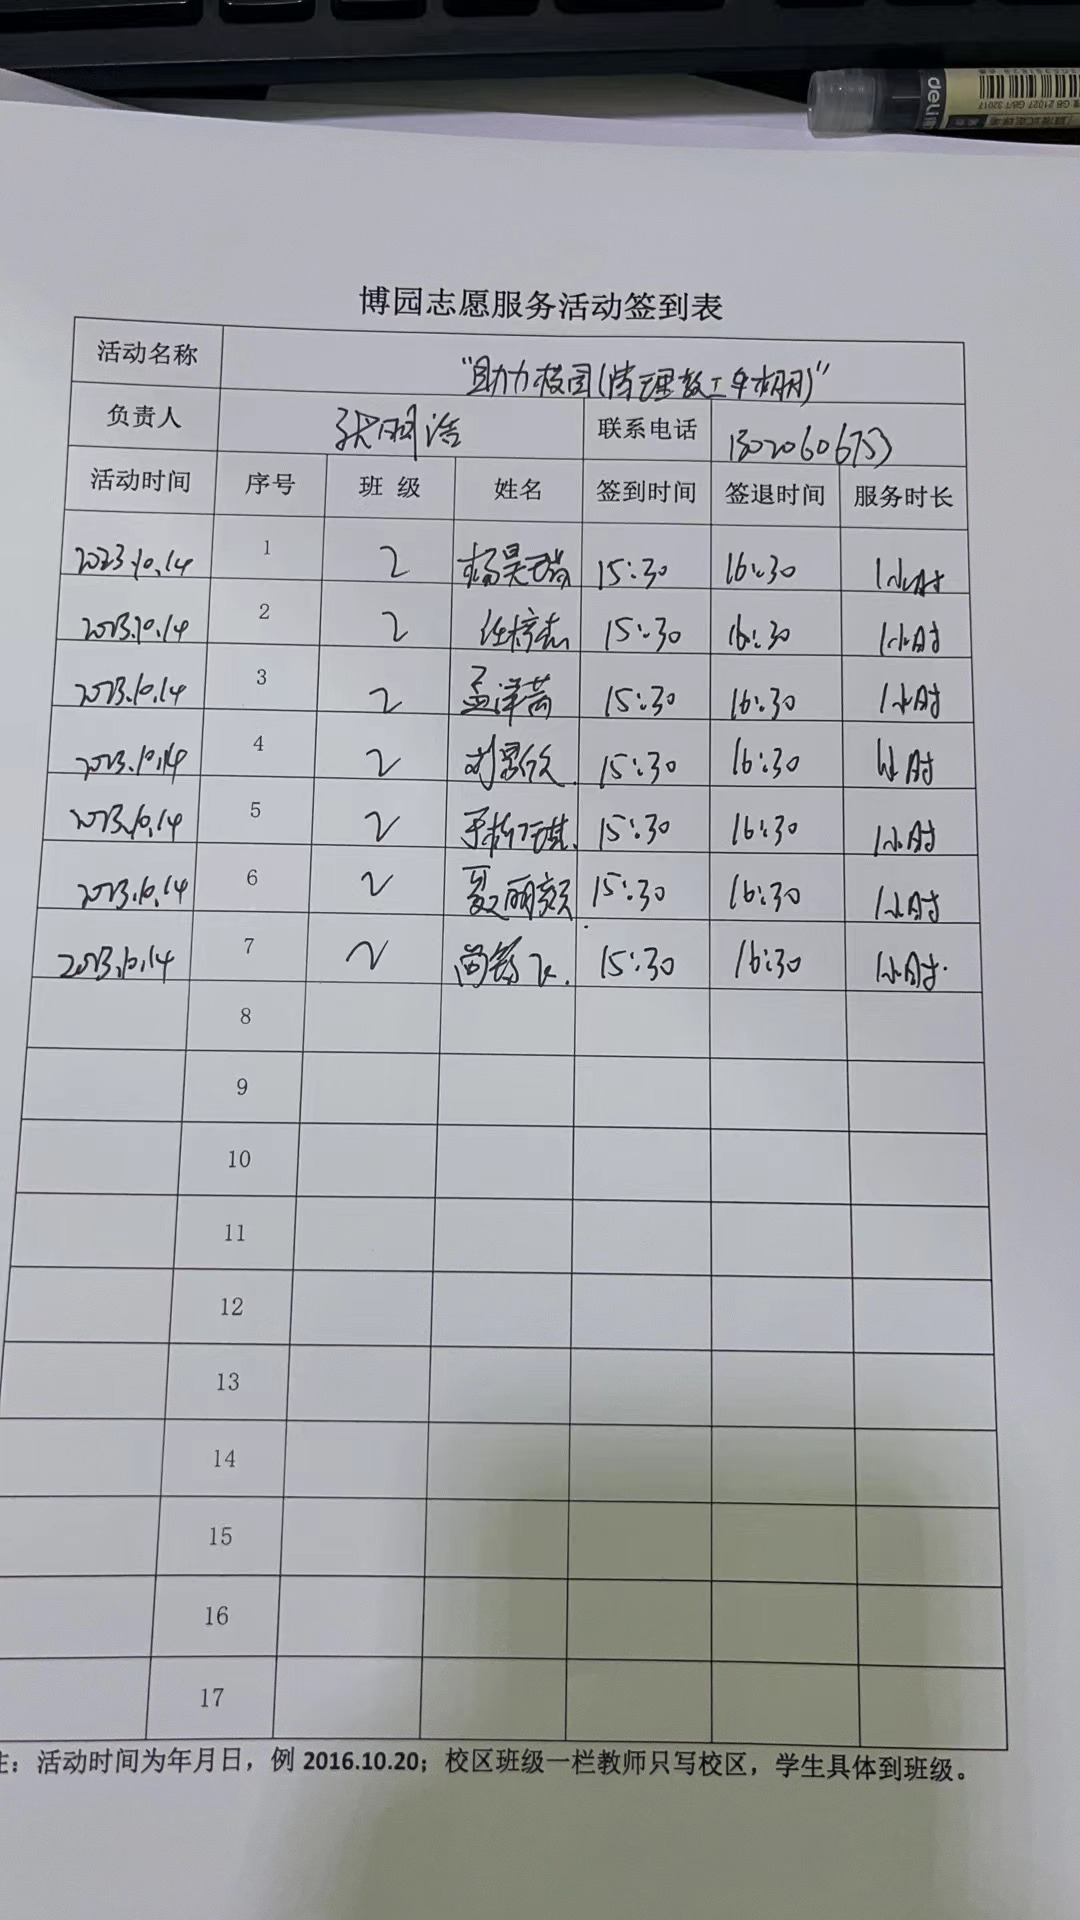 deli
GB 21027 GB/T 32017
博园志愿服务活动签到表
活动名称 "助力校园(清理教工车棚)"
负责人 张明浩 联系电话
活动时间 序号 班 级 姓名 签到时间 签退时间 服务时长
2023.10.14 1 2 杨昊瑞 15:30 16:30 1小时
2023.10.14 2 2 任梓志 15:30 16:30 1小时
2023.10.14 3 2 孟泽茜 15:30 16:30 1小时
2023.10.14 4 2 刘 15:30 16:30 1小时
2023.10.14 5 2 15:30 16:30 1小时
2023.10.14 6 2 夏丽颖 15:30 16:30 1小时
2023.10.14 7 2 尚 15:30 16:30 1小时.
8
9
10
11
12
13
14
15
16
17
注：活动时间为年月日，例 2016.10.20；校区班级一栏教师只写校区，学生具体到班级。